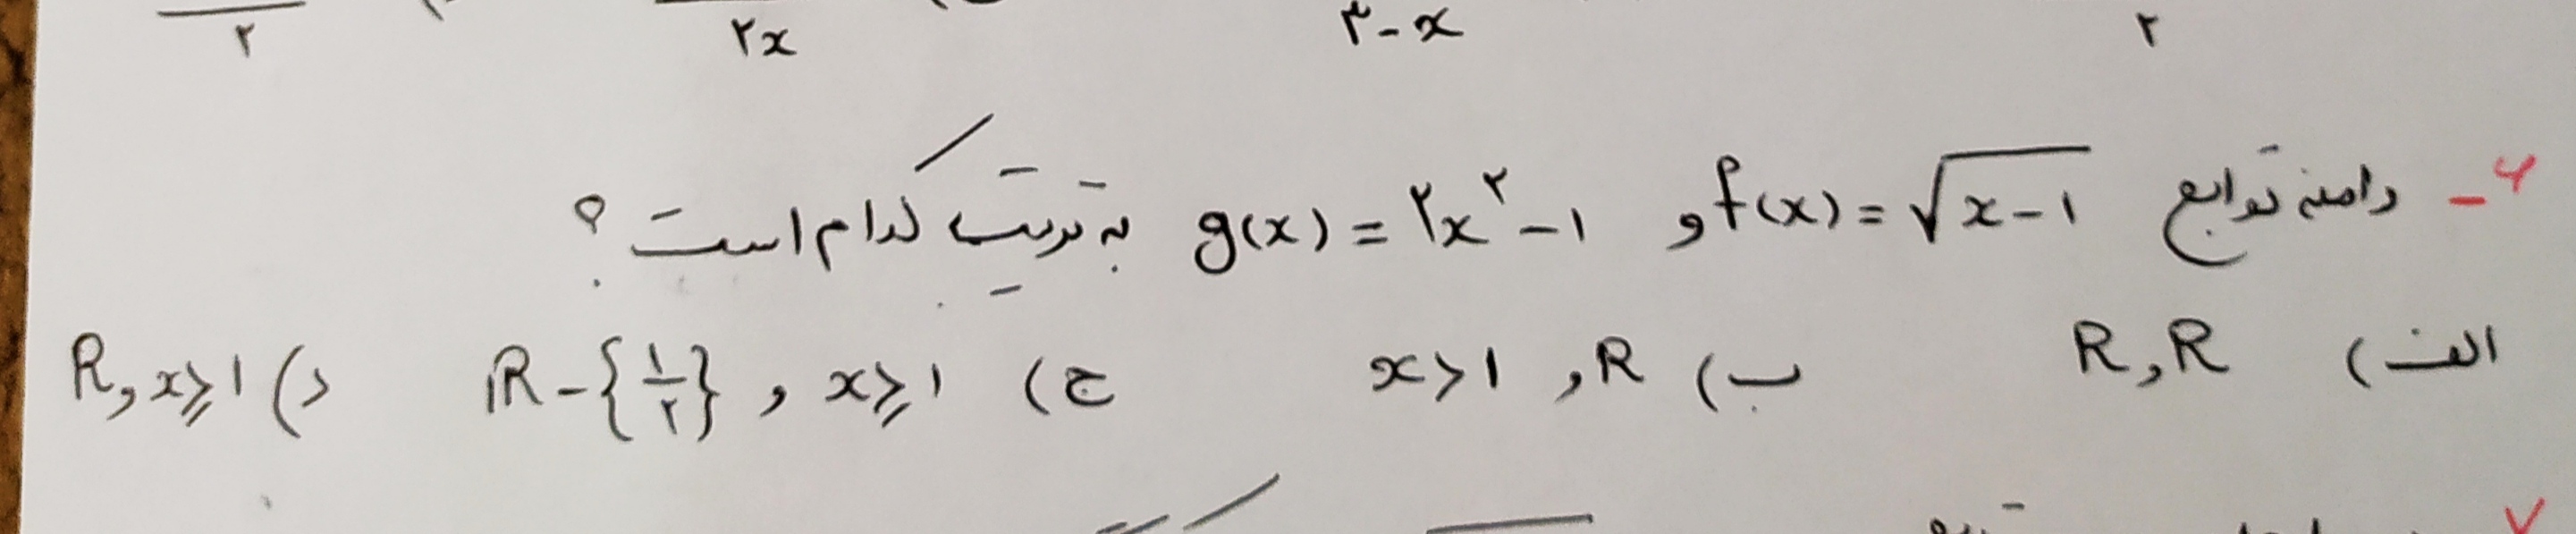 ۲ ۳-x ۲x ۲
۶- دامنه توابع f(x)=√x-۱ و g(x)=۲x^۲-۱ به ترتیب کدام است؟
الف) R و R ب) R و x>۱ ج) x≥۱ و R-{۱/۲} د) x≥۱ و R
۷